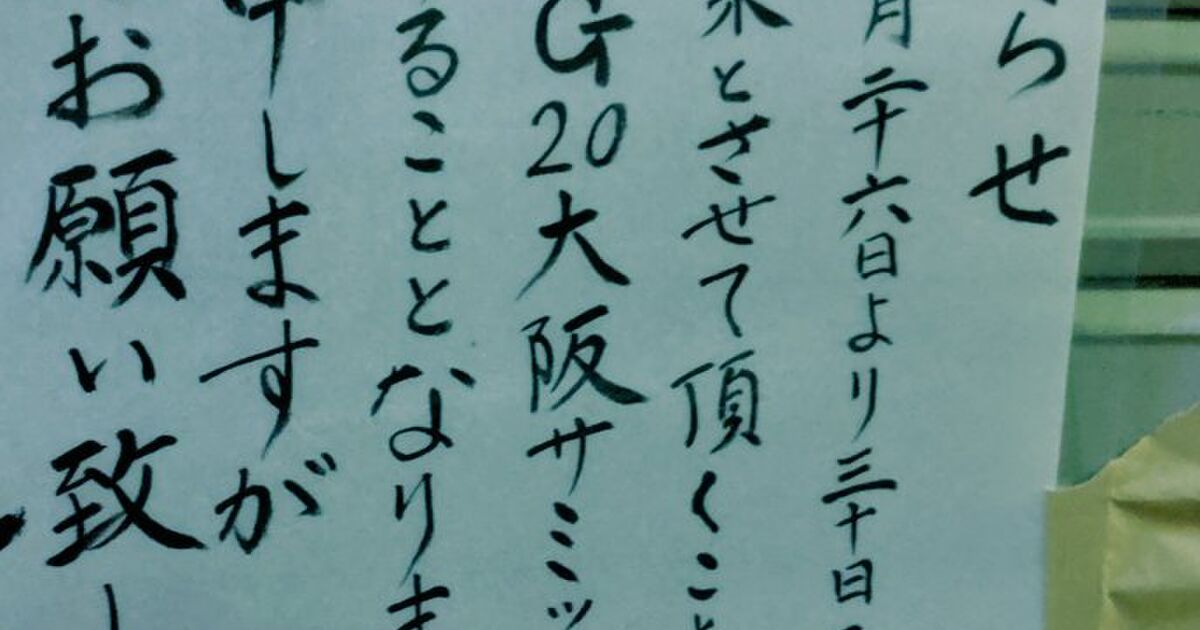 らせ
月二十六日より三十日
とさせて頂くこと
G20大阪サミッ
ることとなりま
申しますが
お願い致し